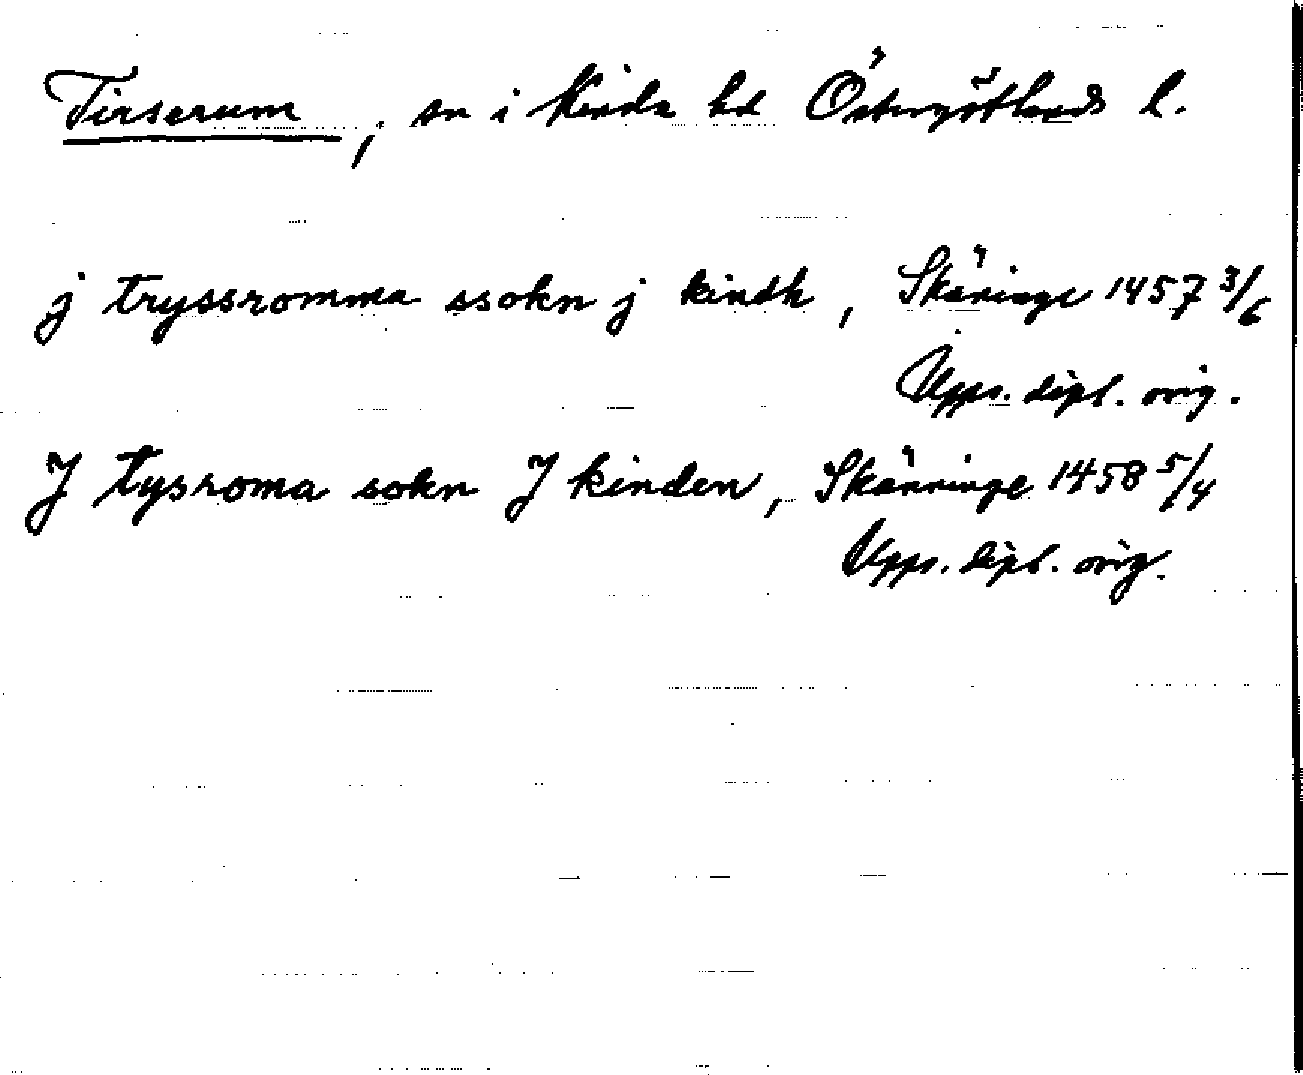 Tirserum, sn i Kinda hd Östergötlands l.
j tryssromma ssokn j kindh, Skäninge 1457 3/6
Upps. dipl. orig.
J tysroma sokn J kinden, Skänninge 1458 5/4
Upps. dipl. orig.